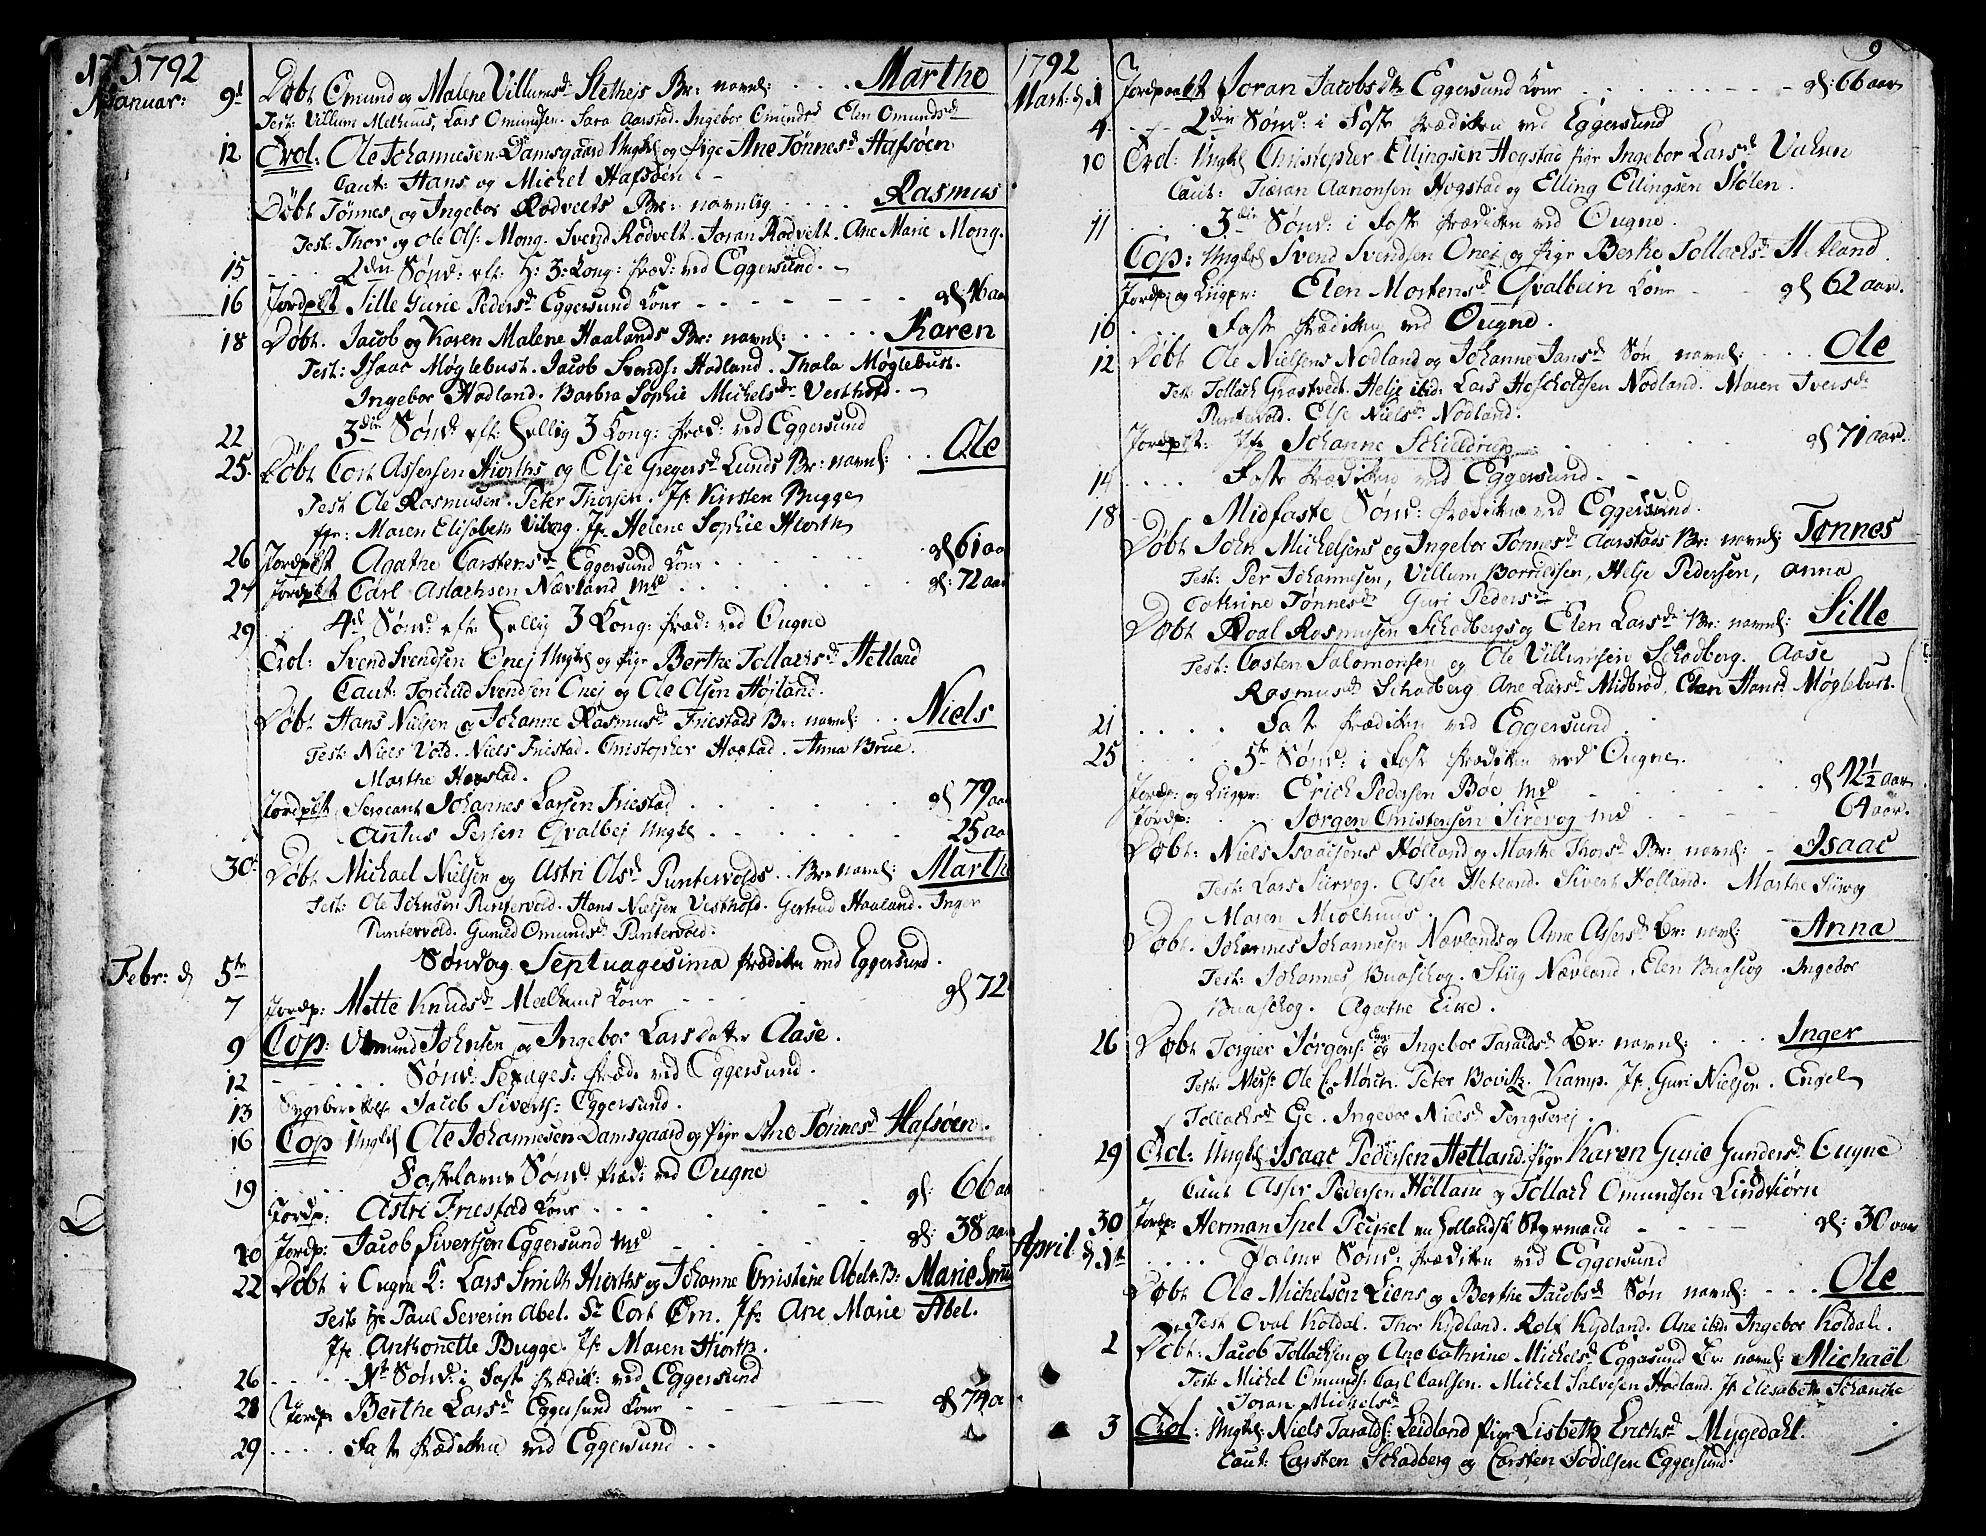 1792
Januar: 9d Døbt Omund og Malene Villumsd Slethejs Br: navnl: .... Marthe
Test: Villum Melhuus, Lars Omundsen. Sara Aarstad. Ingebor Omundsd Elen Omundsd
12 Trol: Ole Johannesen Damsgaard Ungkl og Pige Ane Tønnesd Hafsøen
Caut: Hans og Michel Hafsøen
Døbt Tønnes og Ingebor Rødvelts Br: navnlig .... Rasmus
Test: Thor og Ole Ols: Mong. Svend Rødvelt. Joran Rødvelt. Ane Marie Mong.
15 .... 2den Sønd: eft: H: 3: Kong: Præd: ved Eggersund.
16 Jordpkt Sille Gurie Pedersd Eggersund Kone gl 46 aa
18 Døbt. Jacob og Karen Malene Haalands Br: navnl: .... Karen
Test: Isaac Møglebust. Jacob Svends: Hadland. Thala Møglebust.
Ingebor Hadland. Barbra Sophie Michelsdr Vesthofd.
22 3die Sønd: eft: Hellig 3 Kong: Præd: ved Eggersund
25. Døbt Cort Assersen Hiorths og Elje Gregersd Lunds Br: navnl: .. Ole
Test Ole Rasmusen. Peter Thorsen. Jfr Kirsten Bugge
Jfr: Maren Elisabeth Viborg. Jfr Helene Sophie Hiorth
26 Jordpkt Agathe Carstensd Eggersund Kone gl 61 aa
27 Jordpkt Carl Aslachsen Nævland Md gl: 72 aar
29 .. 4de Sønd: eft: Hellig 3 Kong: Præd: ved Ougne
Trol: Svend Svendsen Onej Ungkl og Pige Berthe Tollachsd Hetland
Caut: Torkild Svendsen Onej og Ole Olsen Højland.
Døbt Hans Nielsen og Johanne Rasmusd Friestads Br: navnl: .. Niels
Test: Niels Vold. Niels Friestad. Christopher Hogstad. Anna Brue.
Marthe Hogstad.
Jordpkt Sergeant Johannes Larsen Friestad gl 79 aa
Antus Persen Qvalbej Ungkl 25 aa
30. Døbt Michael Nielsen og Astri Olsd Puntervolds. Br: navnl: Marth
Test: Ole Johnsen Puntervold. Hans Nielsen Vesthofd. Gertrud Haaland. Inger
Puntervold. Gunild Omundsd Puntervold.
Febr: d 5te Søndag Septuagesima Prædiken ved Eggersund.
7 Jordp: Mette Knudsd Meelhuus Kone gl 72
9 Cop: Omund Johnsen og Ingebor Larsdatter Aase.
12 ..... Sønd: Sexages: Præd: ved Eggersund.
13 Sygeberettelse Jacob Sivertsn: Eggersund.
16 Cop Ungkl Ole Johannesen Damsgaard og Pige Ane Tønnesd Hafsøen.
19 ..... Fastelavns Sønd Præd: ved Ougne
Jordp: Astri Friestad Kone gl: 66 aa
20 Jordp: Jacob Sivertsen Eggersund Md gl: 38 aar
22 Døbt i Ougne K: Lars Smith Hiorths og Johanne Christine Abels Br: Marie Smi
Test: Hr Paul Severin Abel. Sr Cort Ørn. Jfr Ane Marie Abel.
Jfr Anthonette Bugge. Jfr Maren Hiorth.
26 ..... 1te Sønd: i Faste Prædik: ved Eggersund
28 Jordp: Berthe Larsd Eggersund Kone gl 74 a
29 ..... Faste Prædiken ved Eggersund..
9
1792
Mart: d 1 Jordpaakst Joran Jacobsdtr Eggersund Kone gl: 66 aar
4 2den Sønd: i Faste Prædiken ved Eggersund
10 Trol: Ungkl Christopher Ellingsen Hogstad Pige Ingebor Larsd Valsen
Caut: Tiæran Aanonsen Hogstad og Elling Ellingsen Stølen.
11 .... 3die Sønd: i Faste Prædiken ved Ougne.
Cop: Ungkl Svend Svendsen Onej og Pige Berthe Tollachsd Hetland.
Jordp: og Liigpr: Elen Mortensd Qvalbein Kone gl 62 aar.
16 .... Faste Prædiken ved Ougne.
12 Døbt Ole Nielsens Nødland og Johanne Jansd Søn navnl: ... Ole
Test: Tollach Grastvedt. Helje ibid: Lars Hescholdsen Nødland. Maren Iversdr
Puntervold. Elje Nielsd Nødland.
Jordpkt: Jfr Johanne Schieldrup gl 71 aar.
14 .... Faste Prædiken ved Eggersund.
18 Midfaste Sønd: Prædiken ved Eggersund.
Døbt John Michelsens og Ingebor Tønnesd Aarstads Br: navnl: Tønnes
Test: Per Johannesen, Villum Borrildsen, Helje Pedersen, Anna
Cathrine Tønnesd Guri Pedersd
Døbt Roal Rasmusen Schadbergs og Elen Larsd Br: navnl: Sille
Test: Casten Salomonsen og Ole Villumsen Schadberg. Aase
Rasmusd Schadberg Ane Larsd Midbrød. Elen Hansd Møglebust.
21 .... Faste Prædiken ved Eggersund.
25 .... 5te Sønd: i Faste Prædiken ved Ougne.
Jordp: og Liigpr: Erich Pedersen Bøe Md gl 42 1/2 aar
Jordp: Jørgen Christensen Sirevog Md 64 aar.
Døbt: Niels Isaacsens Holland og Marthe Thorsd Br: navnl: Isaac
Test: Lars Sirevog. Asser Hetland. Sivert Holland. Marthe Sirevog
Maren Miølhuus.
Døbt. Johannes Johannesen Nævlands og Ane Assersd Br: navnl: Anna
Test: Johannes Buaschog. Stiig Nævland. Elen Buaschog. Ingebor
Buaschog. Agathe Eike.
26 Døbt Torgier Jørgens: Eng: og Ingebor Taraldsd Br: navnl: ... Inger
Test: Mesr Ole C. Mørch. Peter Bowitz. Kamp. Jfr Guri Nielsen. Engel
Tollachsd Eje. Ingebor Nielsd Tengsevej
29 Trol: Ungkl Isaac Pedersen Hetland. Pige Karen Gurie Gundersd Ougne
Caut: Asser Pedersen Hølland og Tollach Omundsen Lindtiørn
30 Jordp: Herman Spel Peckel en Hollandsk Styrmand gl: 30 aar
April d 1te .... Palme Sønd: Prædiken ved Eggersund
Døbt Ole Michelsen Liens og Berthe Jacobsd Søn navnl: ... Ole
Test Oval Koldal. Thor Kydland. Rolf Kydland. Ane ibid: Ingebor Koldal.
2 Døbt: Jacob Tollachsen og Ane Cathrine Michelsd Eggersund Br: navnl: Michaël
Test: Michel Omunds: Carl Carlsen. Michel Salvesen Hadland. Jfr Elisabeth Schancke
Joran Michelsd
3 Trol: Ungkl: Niels Taralds: Leidland Pige Lisbeth Erichsd Mygedahl.
Caut: Carsten Schadberg og Carsten Bodilsen Eggersund.